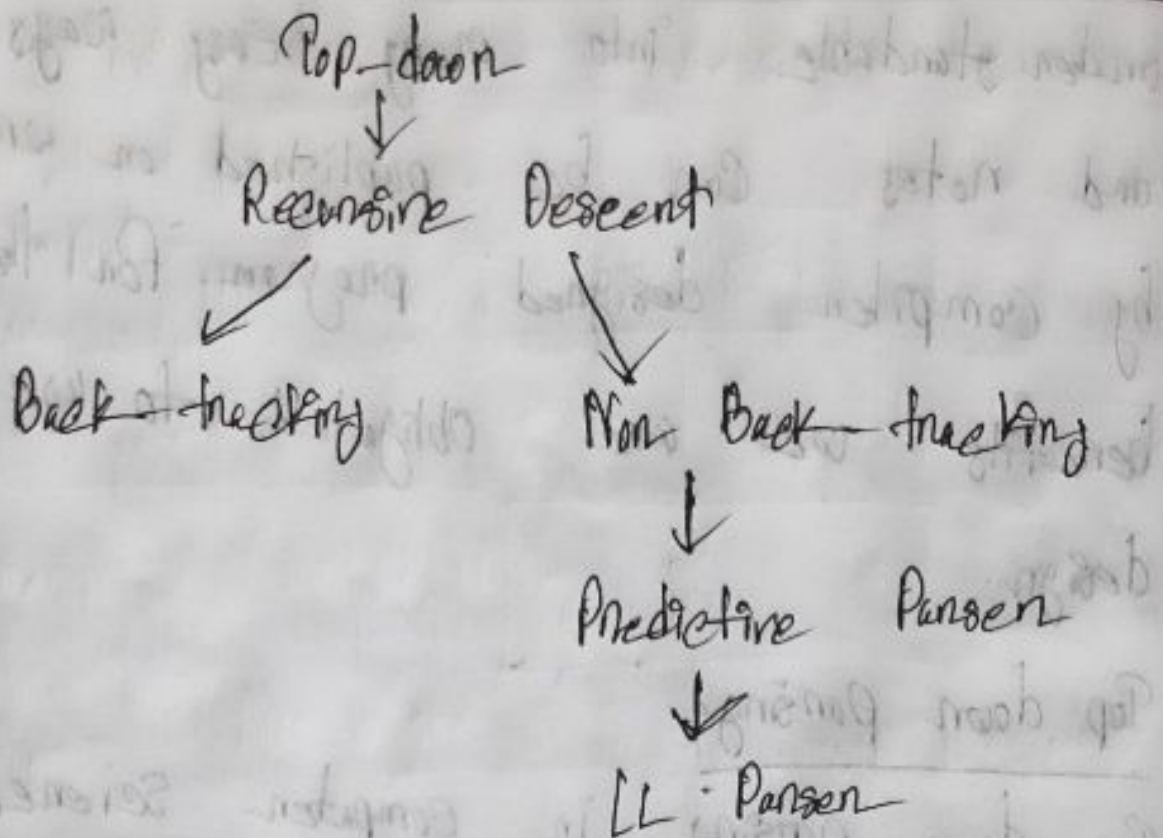 Top-down
Recursive Descent
Back-tracking Non Back-tracking
Predictive Parser
LL Parser